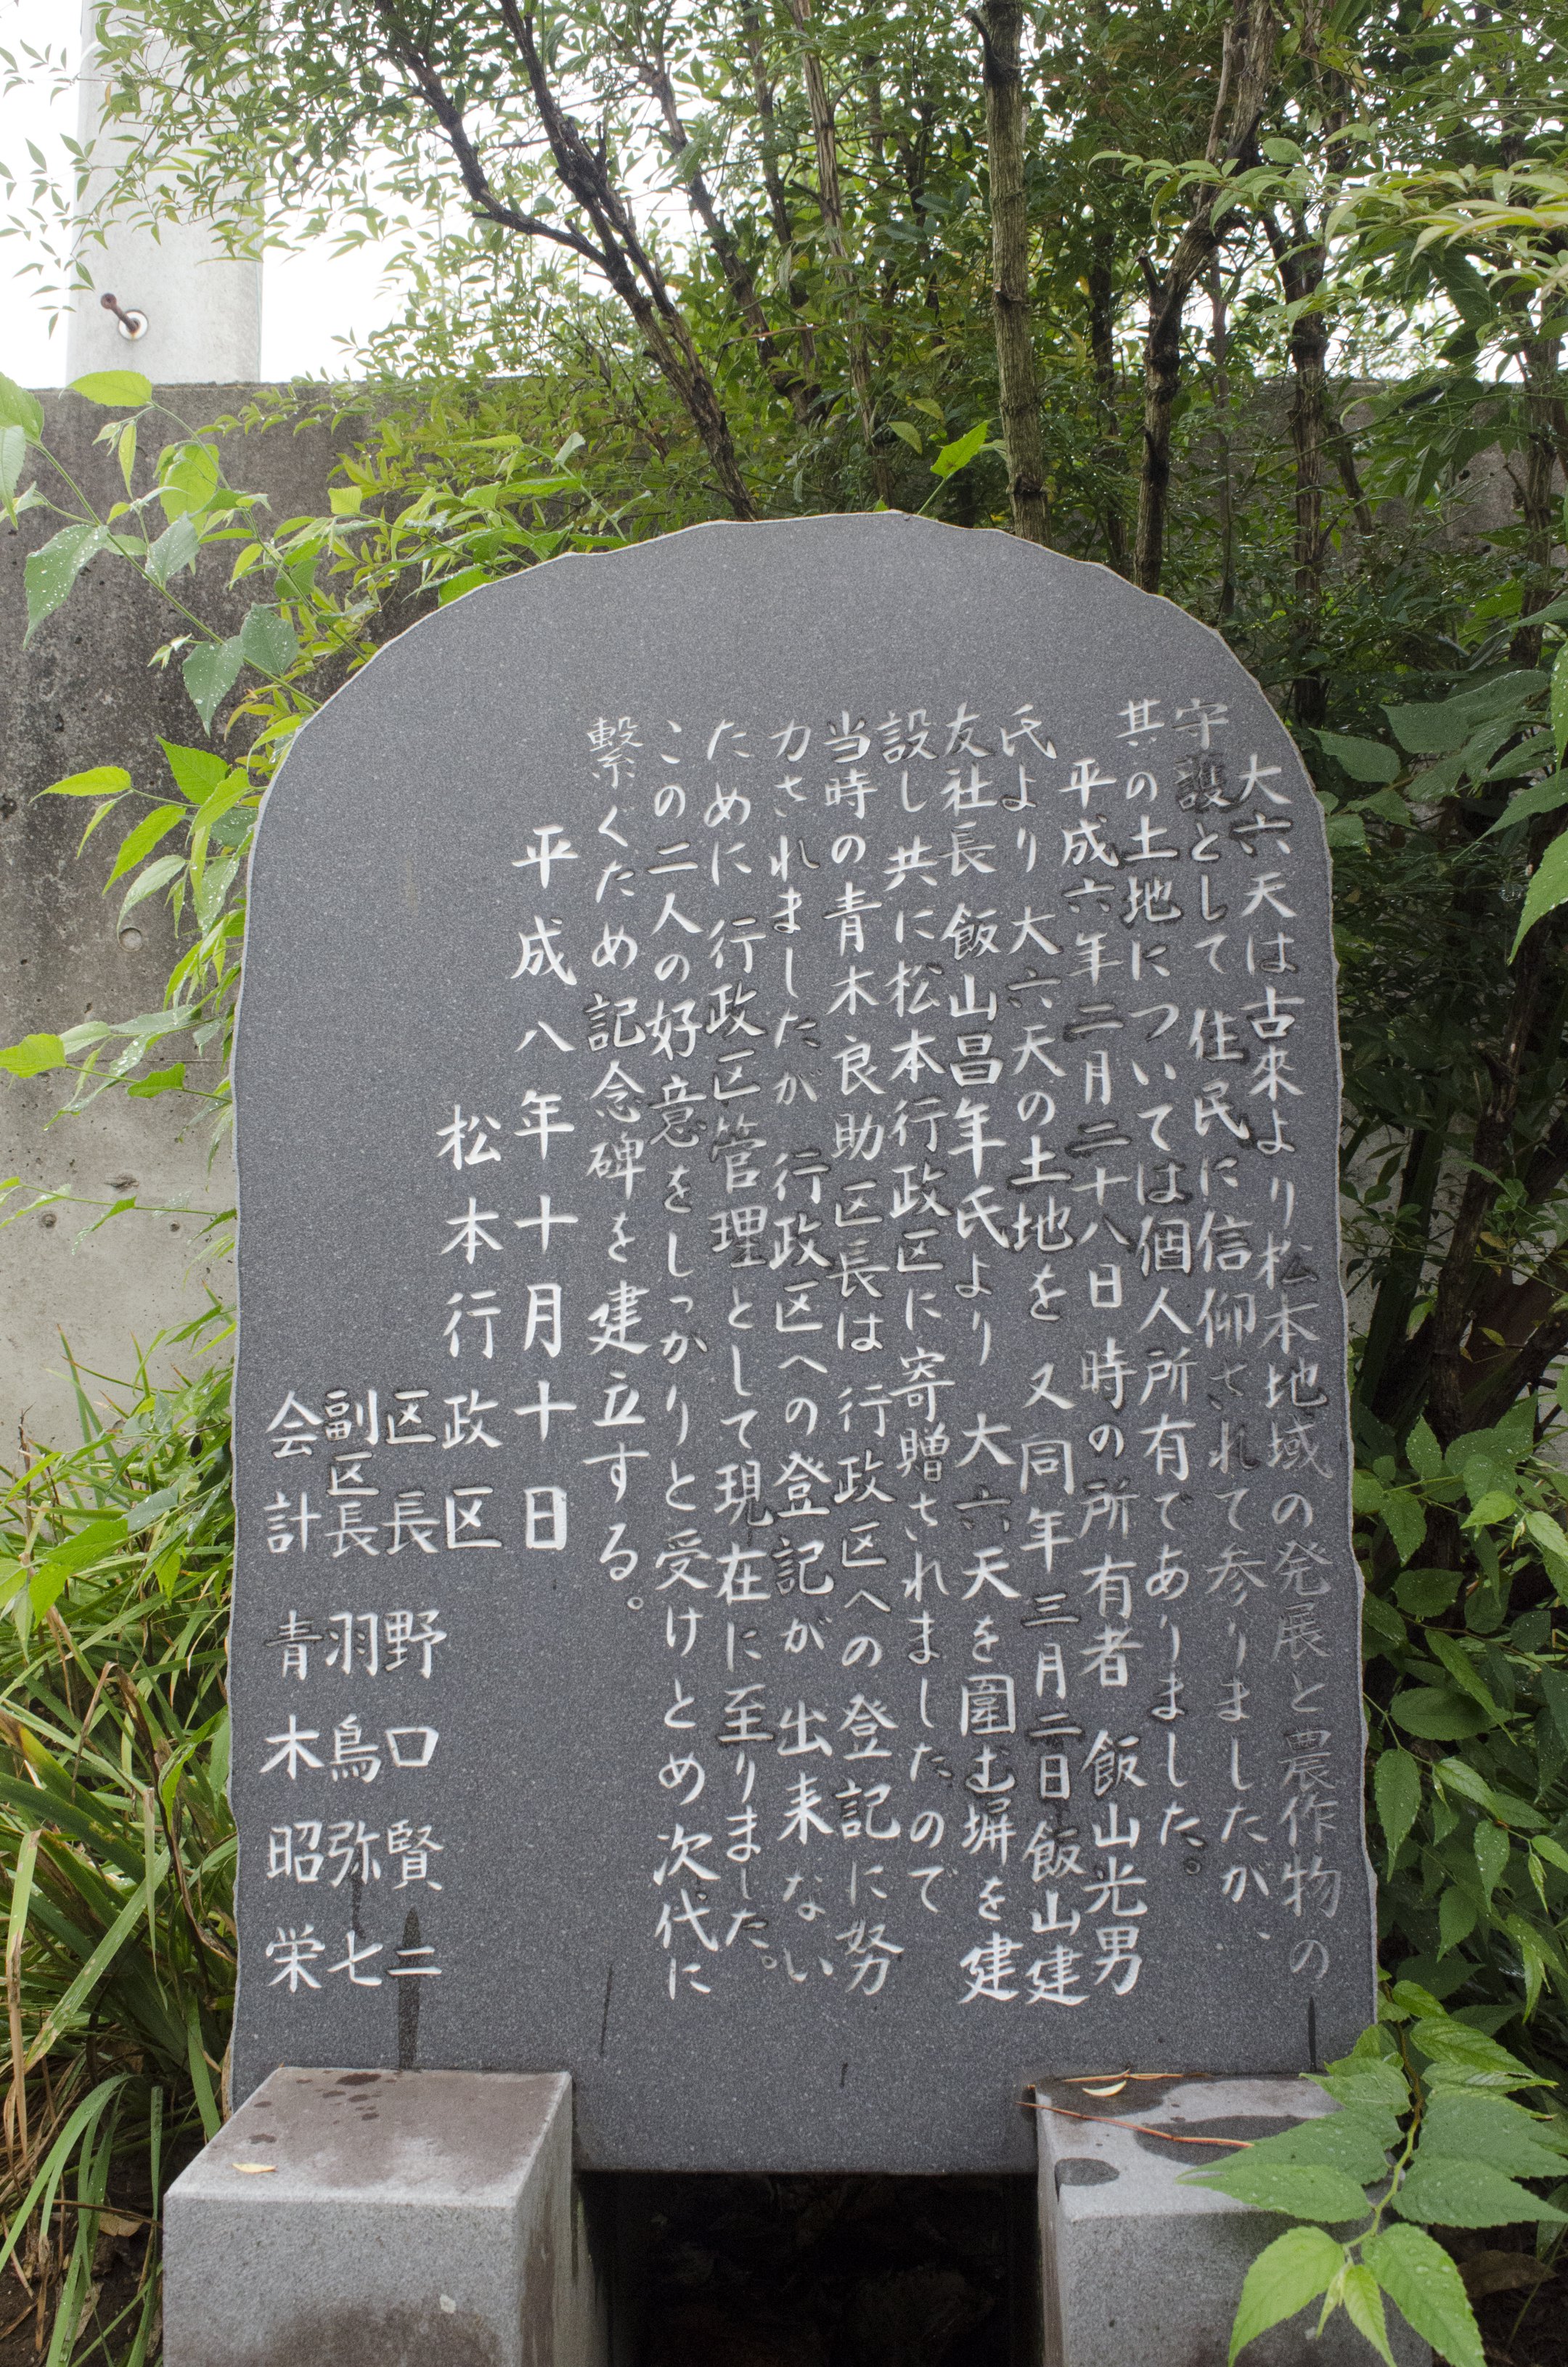 大六天は古來より松本地域の発展と農作物の
守護として 住民に信仰されて参りましたが、
其の土地については個人所有でありました。
平成六年二月二十八日時の所有者 飯山光男
氏より 大六天の土地を 又同年三月二日飯山建
友社長 飯山昌年氏より 大六天を圍む塀を建
設し共に松本行政区に寄贈されましたので
当時の青木良助区長は 行政区への登記に努
力されましたが 行政区への登記が 出来ない
ために 行政区管理として現在に至りました。
この二人の好意をしっかりと受けとめ次代に
繋ぐため記念碑を建立する。
平成八年十月十日
松本行政区
区長 野口賢二
副区長 羽鳥弥七
会計 青木昭栄